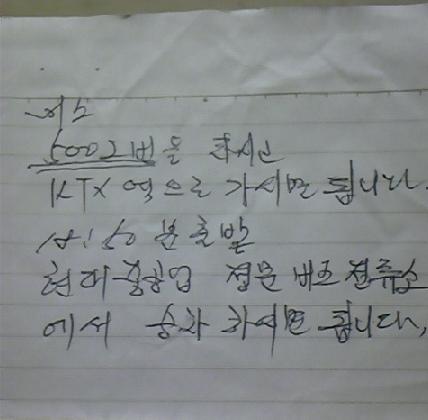 버스
5002번을 타시고
KTX 역으로 가시면 됩니다.
분 출발
현대중공업 정문 버스 정류소
에서 승차 하시면 됩니다,